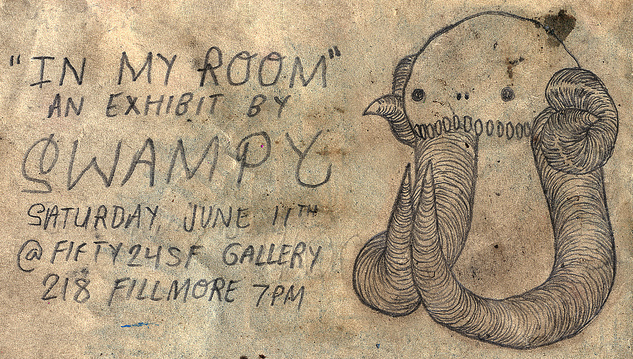 "IN MY ROOM"
AN EXHIBIT BY
SWAMPY
SATURDAY, JUNE 11TH
@ FIFTY24SF GALLERY
218 FILLMORE 7PM